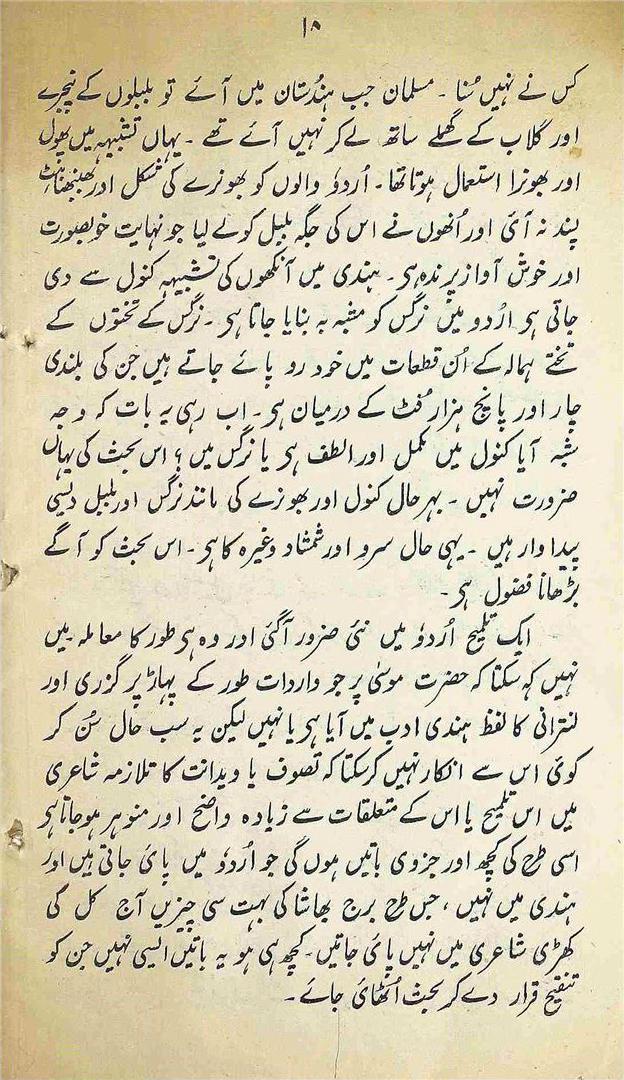 ۱۸
کس نے نہیں سُنا ۔ مسلمان جب ہندُستان میں آئے تو بلبلوں کے پنجرے
اور گلاب کے گملے ساتھ لے کر نہیں آئے تھے ۔ یہاں تشبیہہ میں پھول
اور بھونرا استعمال ہوتا تھا ۔ اُردوٗ والوں کو بھونرے کی شکل اور بھنبھناہٹ
پسند نہ آئی اور اُنھوں نے اس کی جگہ بلبل کو لے لیا جو نہایت خوبصورت
اور خوش آواز پرندہ ہی ۔ ہندی میں آنکھوں کی تشبیہہ کنول سے دی
جاتی ہی اُردو میں نرگس کو مشبہ بہ بنایا جاتا ہی ۔ نرگس کے تختوں کے
تختے ہمالہ کے اُن قطعات میں خود رو پائے جاتے ہیں جن کی بلندی
چار اور پانچ ہزار فٹ کے درمیان ہی ۔ اب رہی یہ بات کہ وجہ
شبہ آیا کنول میں مکمل اور الطف ہی یا نرگس میں ؟ اس بحث کی یہاں
ضرورت نہیں ۔ بہرحال کنول اور بھونرے کی مانند نرگس اور بلبل دیسی
پیداوار ہیں ۔ یہی حال سرو اور شمشاد وغیرہ کا ہی ۔ اس بحث کو آگے
بڑھانا فضول ہی ۔
ایک تلمیح اُردوٗ میں نئی ضرور آگئی اور وہ ہی طور کا معاملہ ۔ میں
نہیں کہہ سکتا کہ حضرت موسیٰ پر جو واردات طور کے پہاڑ پر گزری اور
لنترانی کا لفظ ہندی ادب میں آیا ہی یا نہیں لیکن یہ سب حال سُن کر
کوئی اس سے انکار نہیں کرسکتا کہ تصوف یا ویدانت کا تلازمہ شاعری
میں اس تلمیح یا اس کے متعلقات سے زیادہ واضح اور منوہر ہوجاتا ہی
اسی طرح کی کچھ اور جزوی باتیں ہوں گی جو اُردوٗ میں پائی جاتی ہیں اور
ہندی میں نہیں ، جس طرح برج بھاشا کی بہت سی چیزیں آج کل کی
کھڑی شاعری میں نہیں پائی جاتیں ۔ کچھ ہی ہو یہ باتیں ایسی نہیں جن کو
تنقیح قرار دے کر بحث اُٹھائی جائے ۔